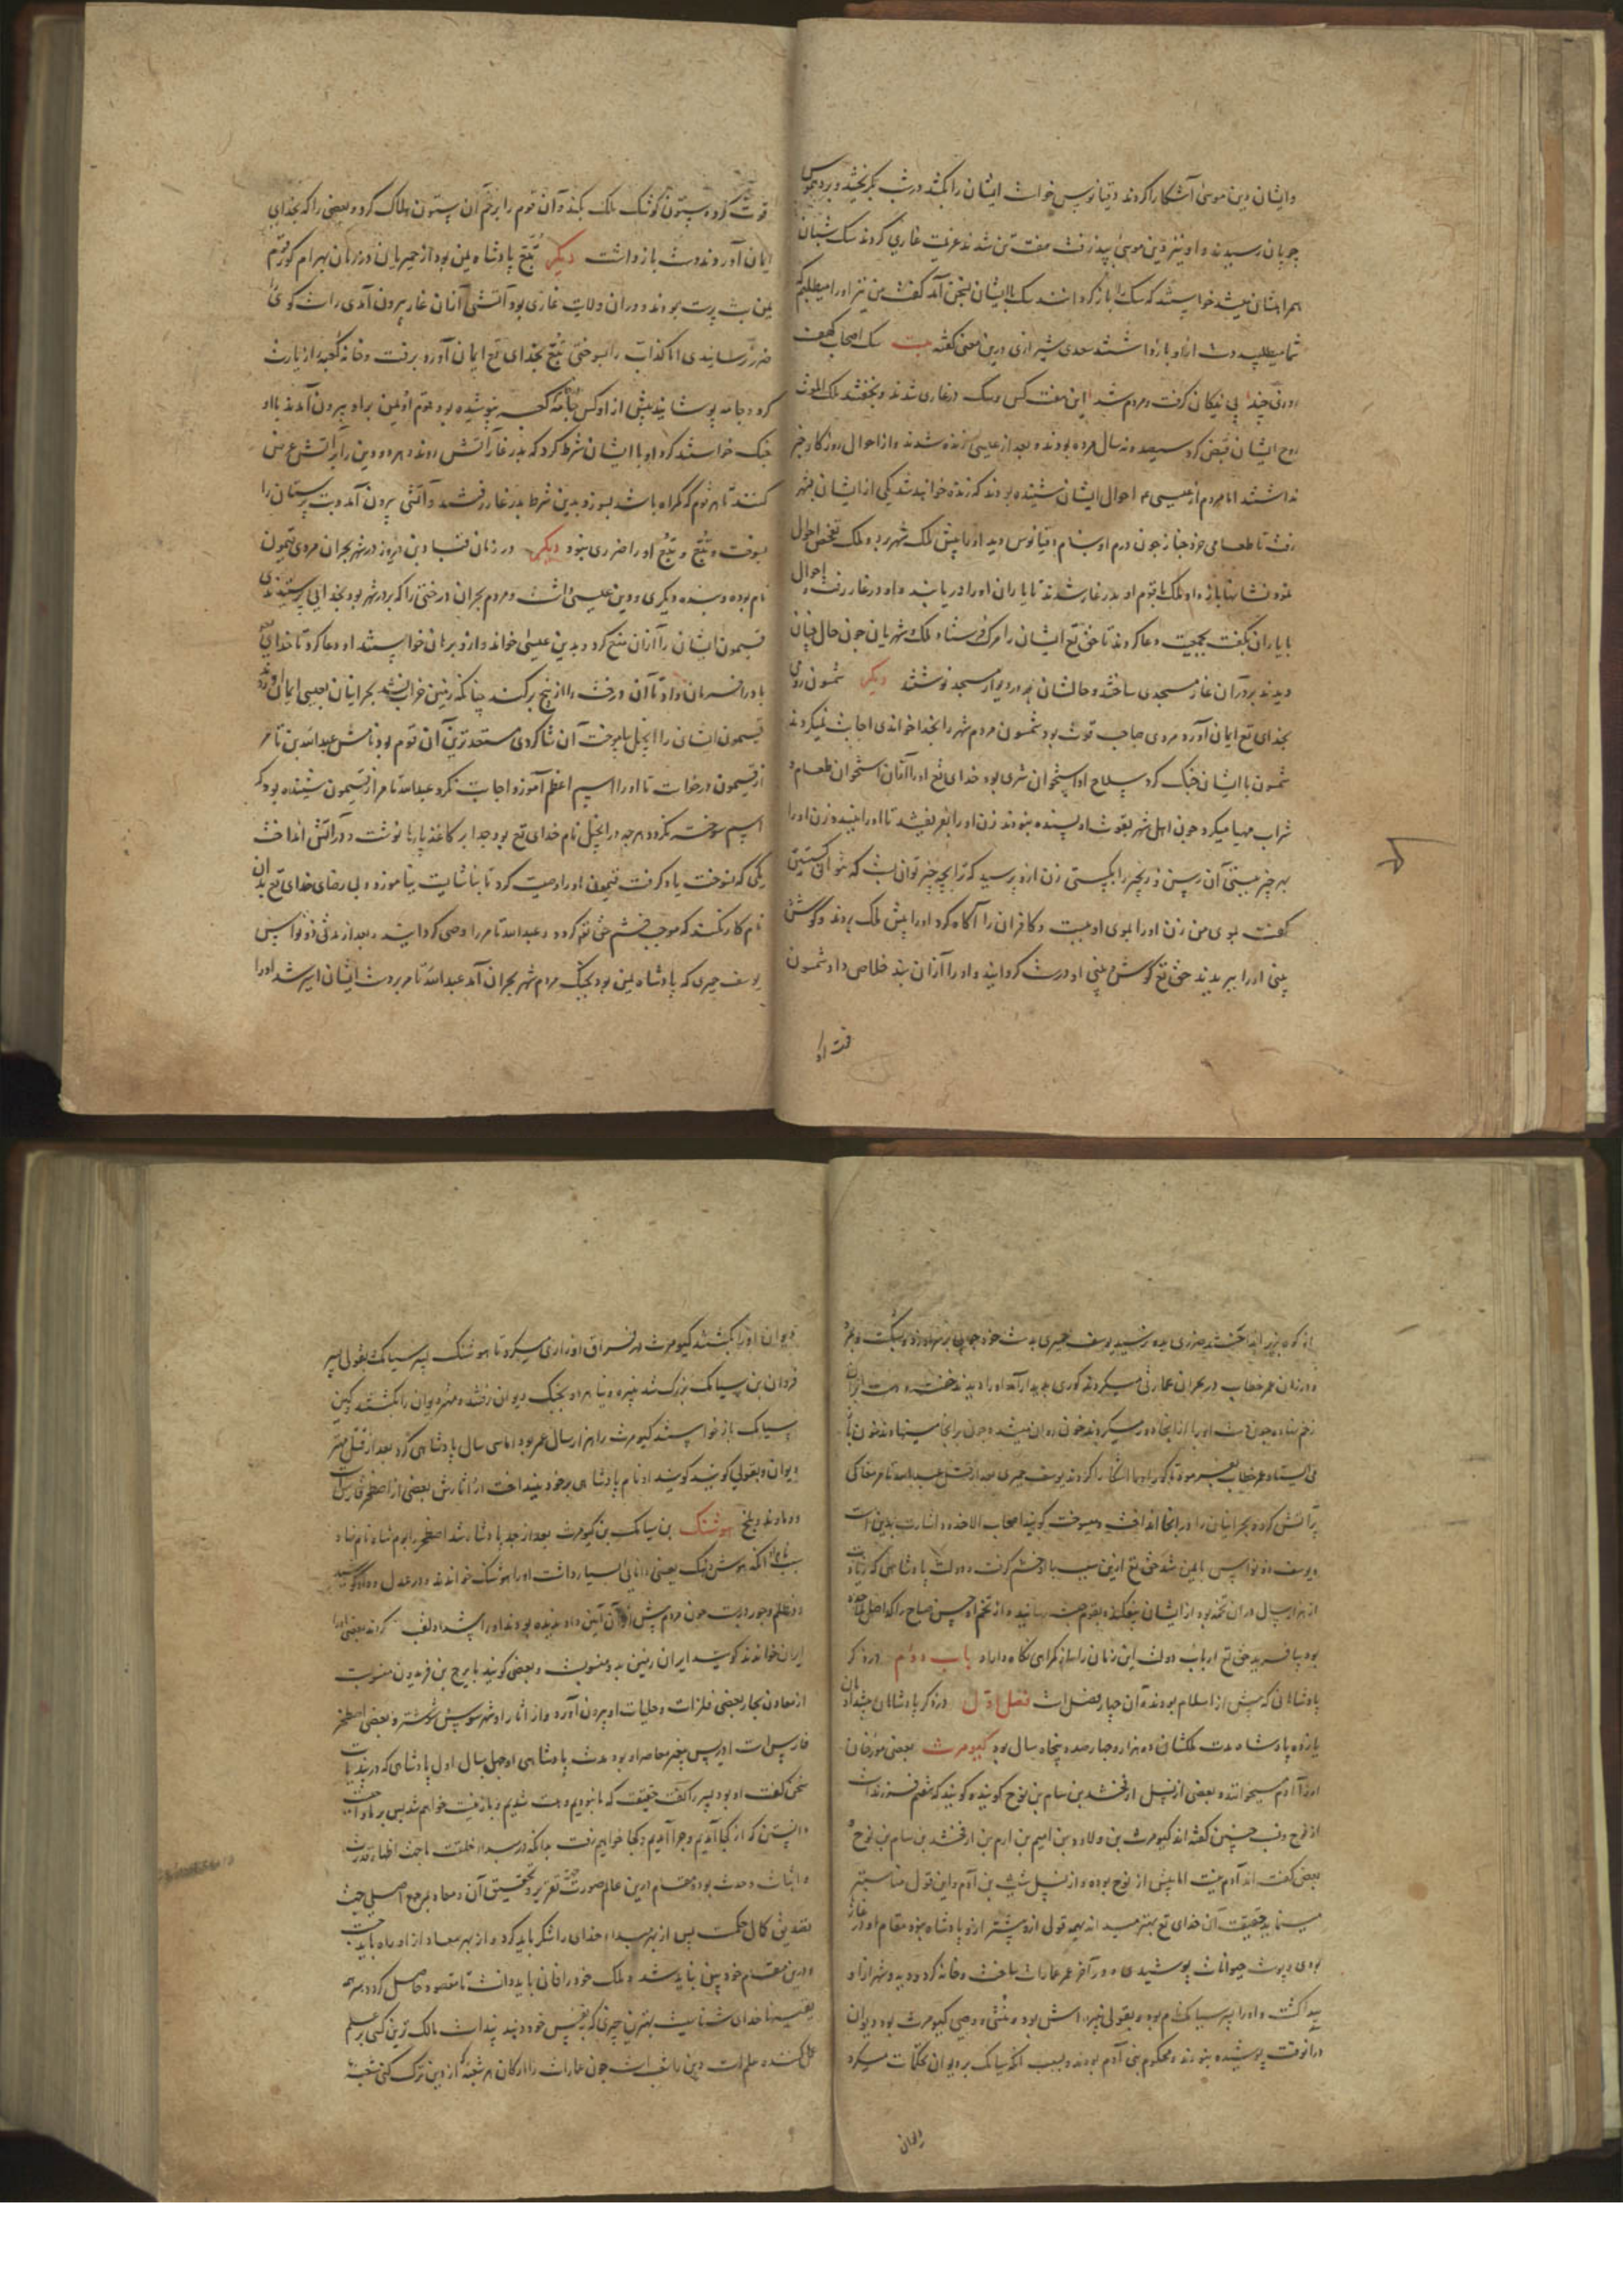 وایشان دین موسی آشکارا کردند دقیانوس خواست ایشان را بکشد در شب بگریختند و بر دیموس
چوپان رسیدند و او نیز دین موسی پذرفت هفت تن شدند عزیمت غاری کردند سک شبان
همراه ایشان میشد خواستند که سک را باز کردانند سک با ایشان بسخن آمد کفت من نیز اورا میطلبم که
شما میطلبید دست ازو بازداشتند سعدی شیرازی درین معنی کفته بیت سک اصحاب کهف
روزی چند پی نیکان کرفت و مردم شد این هفت کس و سک در غاری شدند و بخفتند ملک الموت
روح ایشان قبض کرد سیصد و نه سال مرده بودند و بعد از عیسی زنده شدند و از احوال روزکار خبر
نداشتند اما مردم از عیسی ع احوال ایشان شنیده بودند که زنده خواهند شد یکی از ایشان بشهر
رفت تا طعامی خرد خباز جون درم او بنام دقیانوس دید او را پیش ملک شهر برد و ملک تفحص احوال
نمود نشانها باز داد ملک با قوم او بدر غار شدند تا یاران او را دریابند و او در غار رفت و احوال
با یاران بکفت بجمعیت دعا کردند تا حق تع ایشان را مرک فرستاد ملک و شهریان جون حال چنان
دیدند بر در آن غار مسجدی ساختند و حالشان بر در و دیوار مسجد نوشتند دیکر شمسون رومی
بخدای تع ایمان آورد مردی صاحب قوت بود شمسون مردم شهر را بخدا خواندی اجابت نمیکردند
شمسون با ایشان جنک کرد سلاح او استخوان شتری بود خدای تع اورا از آن استخوان طعام و
شراب مهیا میکرد جون اهل شهر بقوت با او بسنده نبودند زن اورا بفریفتند تا اورا ببندد زن اورا
بهر چیز ببستی آن رسن و زنجیر را بکستی زن ازو پرسید که ترا بچه چیز توان بست که نتوانی کسستن
کفت بموی من زن اورا بموی او ببست و کافران را آکاه کرد اورا پیش ملک بردند و کوش و
بینی اورا ببریدند حق تع کوش و بینی او درست کردانید و اورا از آن بند خلاص داد شمسون
قوت کرد و ستون کوشک ملک بکند و آن قوم را بر خم آن ستون هلاک کرد و بعضی را که بخدای
ایمان آوردند دست بازداشت دیکر تبع پادشاه یمن بود از حمیریان در زمان بهرام کور قوم
یمن بت پرست بودند و در آن ولایت غاری بود آتشی از آن غار بیرون آمدی راست کوی را
ضرر نرسانیدی اما کذاب را بسوختی تبع بخدای تع ایمان آورد برفت و خانه کعبه را زیارت
کرد و جامه پوشانید پیش از او کس جامه کعبه نپوشیده بود قوم او یمن بر او بیرون آمدند با او
جنک خواستند کرد او با ایشان شرط کرد که بدر غار آتش روند و هر دو دین را بر آتش عرض
کنند تا هر قوم که کمراه باشد بسوزد بدین شرط بدر غار رفتند و آتش بیرون آمد و بت پرستان را
بسوخت و تبع و تبع اورا ضرری نبود دیکر در زمان قباد بن فیروز در شهر بحران مردی قیمون
نام بوده و بنده دیکری و دین عیسی داشت و مردم بحران درختی را که بر در شهر بود بخدایی پرستیدندی
قیمون ایشان را از آن منع کرد و بدین عیسی خواند و ازو برهان خواستند او دعا کرد تا خدای تع
باد را فرمان داد تا آن درخت را از بیخ برکند چنانکه زمین خراب نشد بحرانیان بعیسی ایمان آوردند
قیمون ایشان را انجیل بیاموخت آن شاکردی مستعدترین آن قوم بود نامش عبدالله بن تامر
از قیمون درخواست تا اورا اسم اعظم آموزد اجابت نکرد عبدالله تامر از قیمون شنیده بود که
اسم سوخته نکردد هرچه در انجیل نام خدای تع بود جدا بر کاغذ پارها نوشت و در آتش انداخت
یکی که نسوخت یاد کرفت قیمون اورا وصیت کرد تا بناشایست نیاموزد و بی رضای خدای تع بدان
نام کار نکند که موجب خشم حق تع کردد و عبدالله تامر را وصی کردانید بعد از مدتی ذونواس
یوسف حمیری که پادشاه یمن بود بجنک مردم شهر بحران آمد عبدالله تامر بدست ایشان اسیر شد اورا
از کوه بزیر انداختند ضرری بدو نرسید یوسف حمیری بدست خود چوبی بر سر او زد و بشکست و بمرد
و در زمان عمر خطاب در بحران عمارتی میکردند کوری پدید آمد اورا دیدند خفته و دست بر آن
زخم نهاده جون دست اورا از آنجا دور میکردند خون روان میشد و جون بر آنجا مینهادند خون باز
می ایستاد عمر خطاب بفرمود تا کور او را آشکارا کردند یوسف حمیری بعد از قتل عبدالله تامر مغاکی
پر آتش کرد و بحرانیان را در آنجا انداخت و بسوخت کویند اصحاب الاخدود اشارت بدین است
و یوسف ذونواس با یمن شد حق تع ازین سبب با او خشم کرفت و دولت پادشاهی که زیادت
از هزار سال در آن تخمه بود از ایشان بیفکند و بقوم حبشه رسانید و از تخم او حسن صباح را که اصل ملاحده
بود بیافرید حق تع ارباب دولت این زمان را از کمراهی نکاه داراد باب دوم در ذکر
پادشاهانی که پیش از اسلام بودند و آن چهار فصل است فصل اول در ذکر پادشاهان پیشدادیان
یازده پادشاه مدت ملکشان دو هزار و چهارصد و پنجاه سال بود کیومرث بعضی مورخان
اورا آدم میخوانند و بعضی از نسل ارفخشد بن سام بن نوح کویند و کویند که ششم فرزند است
از نوح و نسب چنین کفته اند کیومرث بن ولاود بن امیم بن ارم بن ارفخشد بن سام بن نوح و
بعضی کفته اند آدم نیست اما پیش از نوح بوده و از نسل شیث بن آدم و این قول مناسبتر
مینماید حقیقت آن خدای تع بهتر میداند بهمه قولی ازو پیشتر ازو پادشاه نبود مقام او در غار
بودی و پوست حیوانات پوشیدی و در آخر عمر عمارات ساخت و خانه کرد و دیه و شهر ازو
پیدا کشت و اورا پسر سیامک نام بود و بقولی نبیره اش بود و منشی و وصی کیومرث بود دیوان
در آنوقت پوشیده نبودند و محکوم بنی آدم بودند و بسبب آنکه سیامک بر دیوان تحکمات میکرد
دیوان اورا بکشتند کیومرث در فراق او زاری میکرد تا هوشنک پسر سیامک بقولی پسر
فردان بن سیامک بزرک شد نبیره و نیا همراه بجنک دیوان رفتند و مهتر دیوان را بکشتند و کین
سیامک باز خواستند کیومرث را هزار سال عمر بود اما سی سال پادشاهی کرد بعد از قتل مهتر
دیوان و بقولی کویند کویند او نام پادشاهی بر خود بینداخت از آثارش بعضی از اصطخر فارس است
و دماوند و بلخ هوشنک بن سیامک بن کیومرث بعد از جد پادشاه شد اصطخر را بوم شاه نام نهاد
بسبب آنکه هوش و هنک یعنی دانایی بسیار داشت اورا هوشنک خواندند و در عدل و داد کوشید
و ظلم و جور دربست جون مردم پیش ازو آن آیین داد ندیده بودند اورا پیشداد لقب کردند بعضی اورا
ایران خواندند کویند ایران زمین بدو منسوبست و بعضی کویند بایرج بن فریدون منسوبست
از معادن بحار بعضی فلزات و حلیات او بیرون آورد و از آثار او شهر سوس و شوشتر و بعضی اصطخر
فارس است ادریس پیغمبر معاصر او بود مدت پادشاهی او چهل سال اول پادشاهی که در پند با
سخن کفت او بود پسر را کفت حقیقت که ما نبودیم و هست شدیم و باز نیست خواهیم شد پس بر ما واجبست
دانستن که از کجا آمدیم و چرا آمدیم و کجا خواهیم رفت
و اثبات وحدت بود و مقام درین عالم صورت جهت تقریر و تحقیق آن و معاد مرجع اصلی جهت
تقدیس کمال حکمت پس از بهر مبداء خدای را شکر باید کرد و از بهر معاد ازو راه باید جست
و درین مقام خود بین نباید شد و ملک خود را فانی باید دانست تا مقصود حاصل کردد
خدای شناسیست بهترین چیزی که کس خود
عمل کننده علمست دین را جون عمارات را ارکان هر شعبه که از دین ترک کنی شعبه
قوت کرد
دیوان